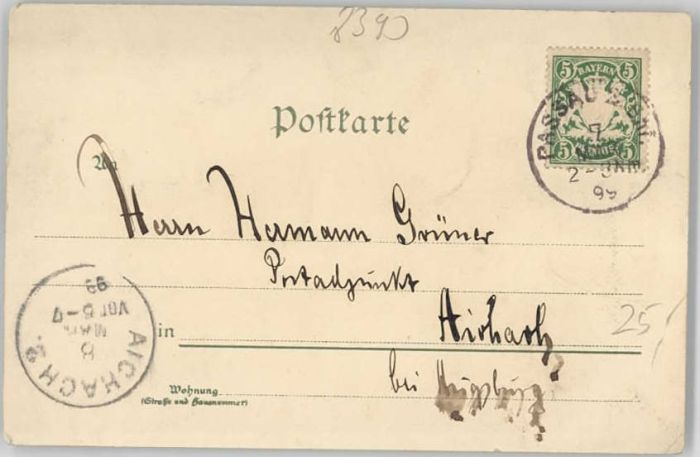 2390
Postkarte
BAYERN
5 5
5 5
PASSAU
7
2
99
An
Herrn Hermann Grüner
Postadjunkt
in Aichach
bei
25
AICHACH
8
MAR
VOR 6-7
99
Wohnung
(Straße und Hausnummer)